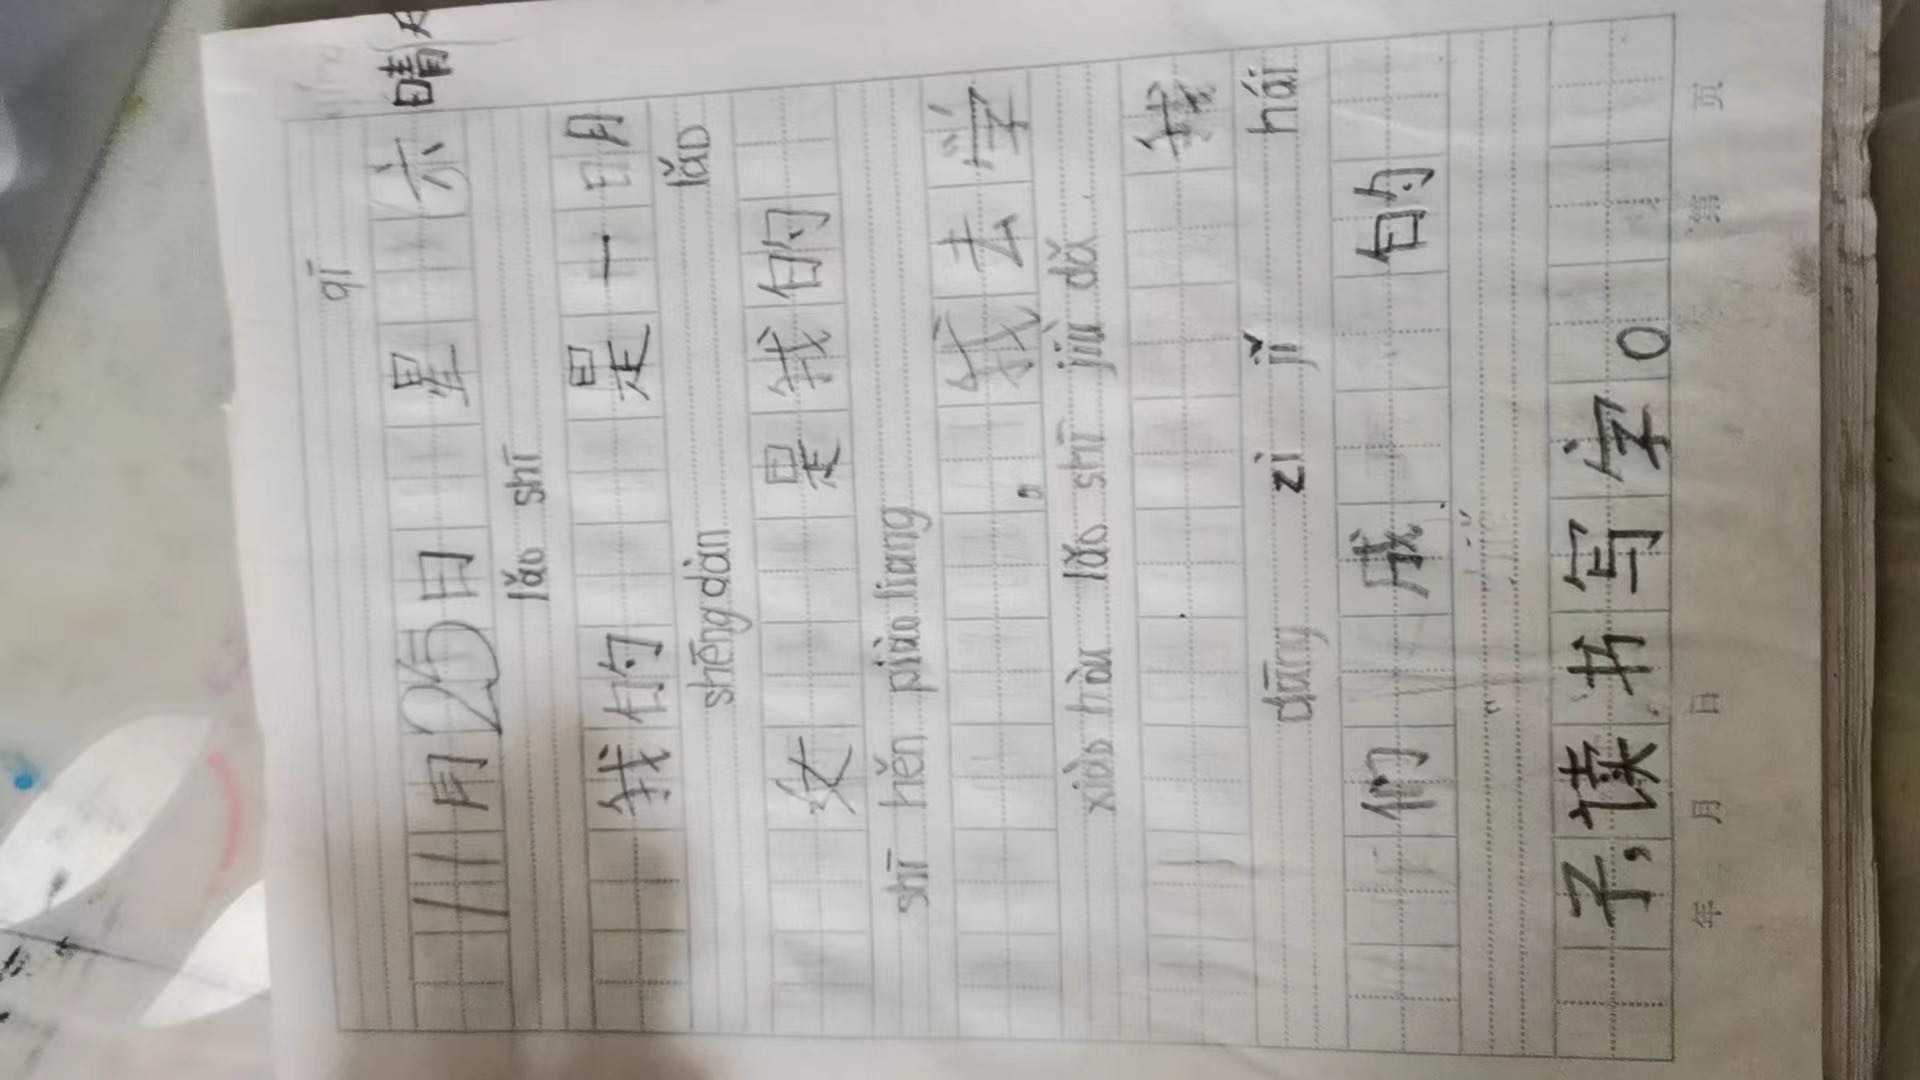 qī
11月25日 星 六 晴
lǎo shī
我的 是一明
shēng dàn lǎo
女 是我的
shī hěn piào liang
，我去学
xiào hòu lǎo shī jiù dǎ
我
dāng zì jǐ hái
们 成 的
子，读书写字。
年 月 日 第 页